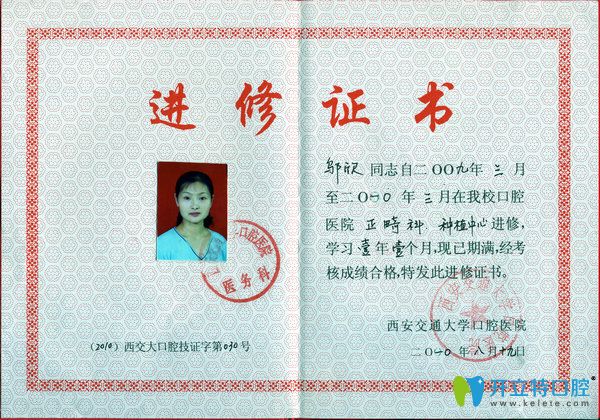 进修证书
邬欣 同志自二〇〇九年 三 月
至二〇一〇 年 三 月在我校口腔
医院 正畸科、种植中心 进修，
学习 壹 年 壹 个月，现已期满，经考
核成绩合格，特发此进修证书。
口腔医院
医务科
(2010) 西交大口腔技证字第030号
西安交通大学口腔医院
二〇一〇 年 八 月 十九 日
西安交通大学口腔医院
开立特口腔
www.kelete.com